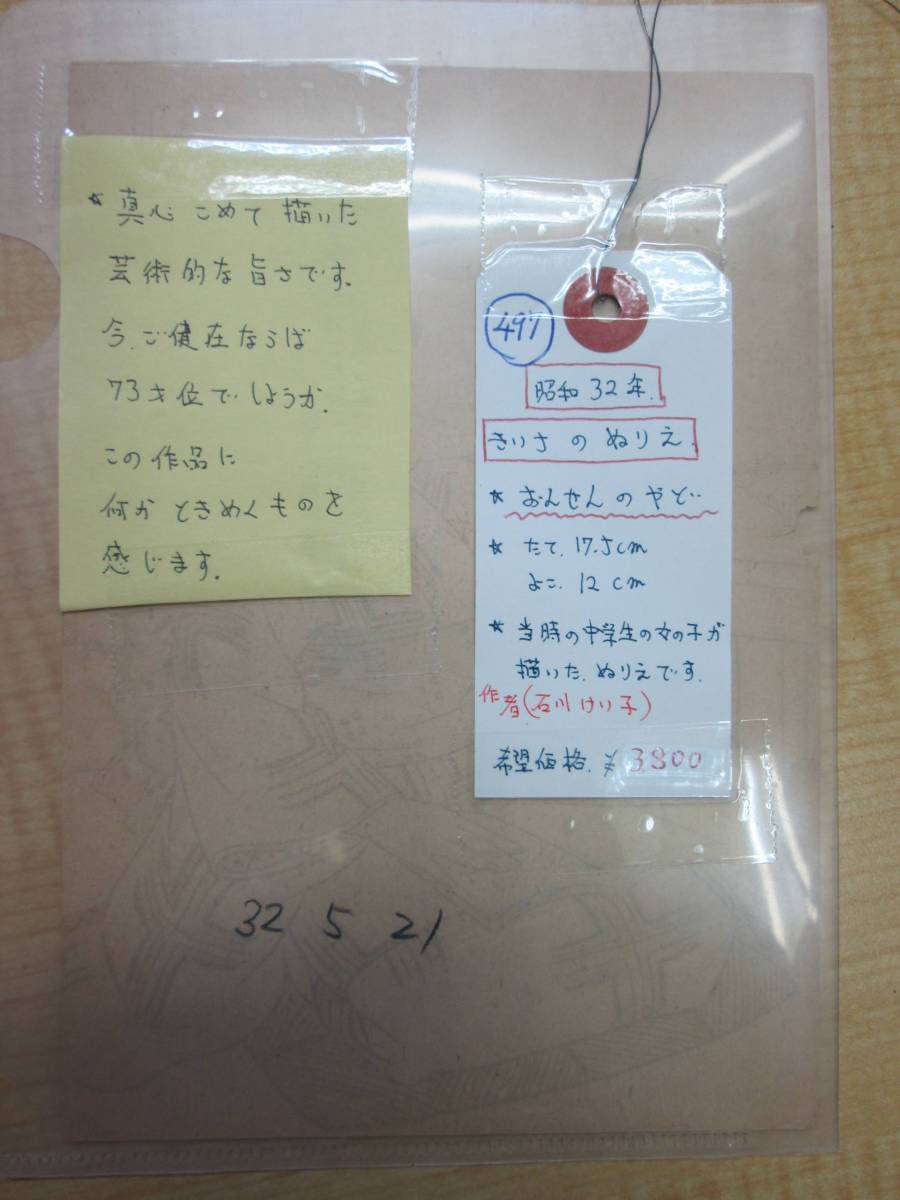 ★ 真心こめて描いた
芸術的な旨さです。
今、ご健在ならば
73才位でしょうか。
この作品に
何かときめくものを
感じます。
497
昭和32年.
きいちのぬりえ.
★ おんせんのやど
★ たて. 17.5cm
よこ. 12cm
★ 当時の中学生の女の子が
描いた.ぬりえです.
作者(石川けい子)
希望価格. ¥3800
32 5 21